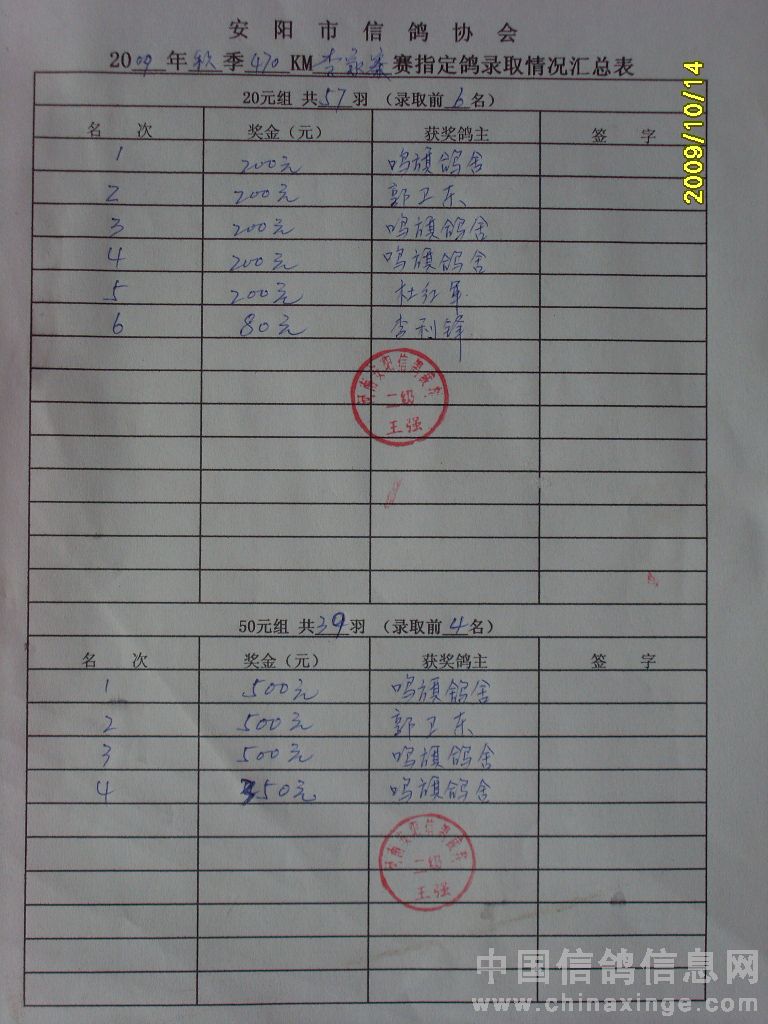 安阳市信鸽协会
2009年秋季470KM李家寨赛指定鸽录取情况汇总表
2009/10/14
20元组 共57羽 （录取前6名）
名 次 奖金（元） 获奖鸽主 签 字
1 200元 鸣旗鸽舍
2 200元 郭卫东
3 200元 鸣旗鸽舍
4 200元 鸣旗鸽舍
5 200元 杜红军
6 80元 李利锋
二级
王强
50元组 共39羽 （录取前4名）
名 次 奖金（元） 获奖鸽主 签 字
1 500元 鸣旗鸽舍
2 500元 郭卫东
3 500元 鸣旗鸽舍
4 350元 鸣旗鸽舍
二级
王强
中国信鸽信息网
www.chinaxinge.com